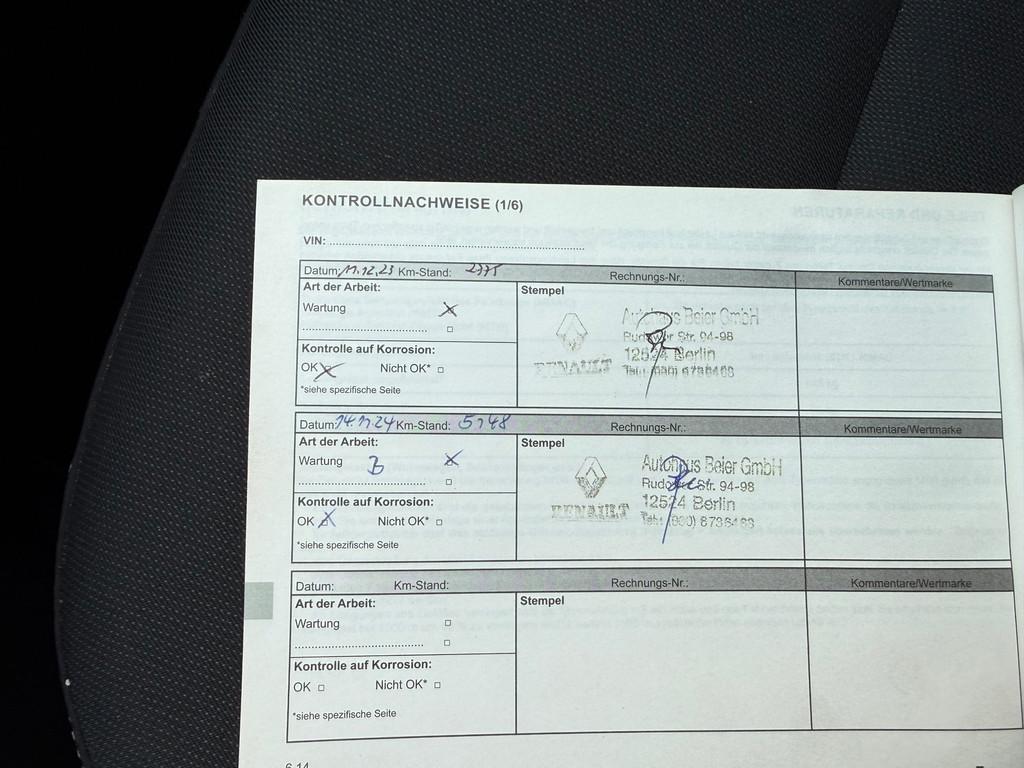 KONTROLLNACHWEISE (1/6)
VIN:
Datum: 11.12.23 Km-Stand: 2775 Rechnungs-Nr.: Kommentare/Wertmarke
Art der Arbeit: Stempel
Wartung X
Kontrolle auf Korrosion:
OK X Nicht OK*
*siehe spezifische Seite
RENAULT
Autohaus Beier GmbH
Str. 94-98
12524 Berlin
Datum: 14.11.24 Km-Stand: 5148 Rechnungs-Nr.: Kommentare/Wertmarke
Art der Arbeit: Stempel
Wartung B X
Kontrolle auf Korrosion:
OK X Nicht OK*
*siehe spezifische Seite
RENAULT
Autohaus Beier GmbH
Str. 94-98
12524 Berlin
Datum: Km-Stand: Rechnungs-Nr.: Kommentare/Wertmarke
Art der Arbeit: Stempel
Wartung
Kontrolle auf Korrosion:
OK Nicht OK*
*siehe spezifische Seite
6.14